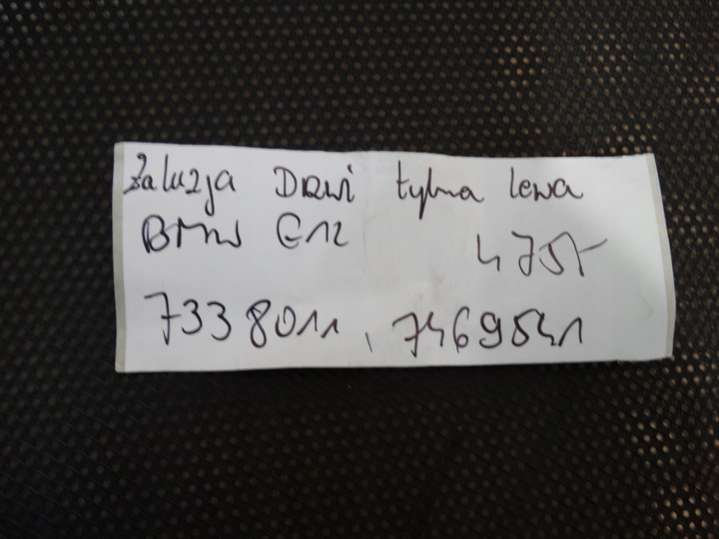 Żaluzja Drzwi tylna lewa
BMW G12 475,-
7338011, 7469541